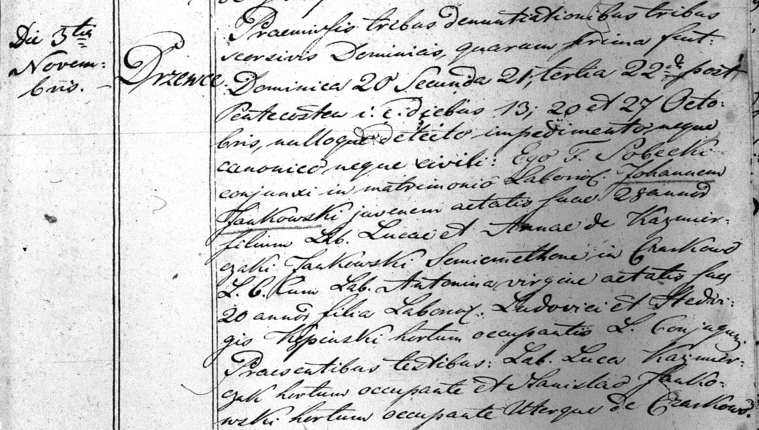 Die 5ta
Novem-
bris.
Drzewce
Praemissis tribus denuntiationibus tribus
Dominicis, quarum prima fuit
Dominica 20 Secunda 21, tertia 22da post
Pentecosten i. e. diebus 13; 20 et 27 Octo-
bris, nulloque detecto impedimento, neque
canonico, neque civili: Ego F. Sobecki
conjunxi in matrimonio Laborios. Johannem
Jankowski juvenem aetatis suae 28 annor
filium Lab. Lucae et Annae de Kazmier-
czaki Jankowski Semicmethone in Czarkowo
L. C. Cum Lab. Antonina, virgine aetatis suae
20 annor filia Laborios. Ludovici et Hedvi-
gis Kępinski hortum occupantis L. Conjugum
Praesentibus testibus: Lab. Luca Kazmier-
czak hortum occupante et Stanislao Janko-
wski hortum occupante Uterque de Czarkowo.